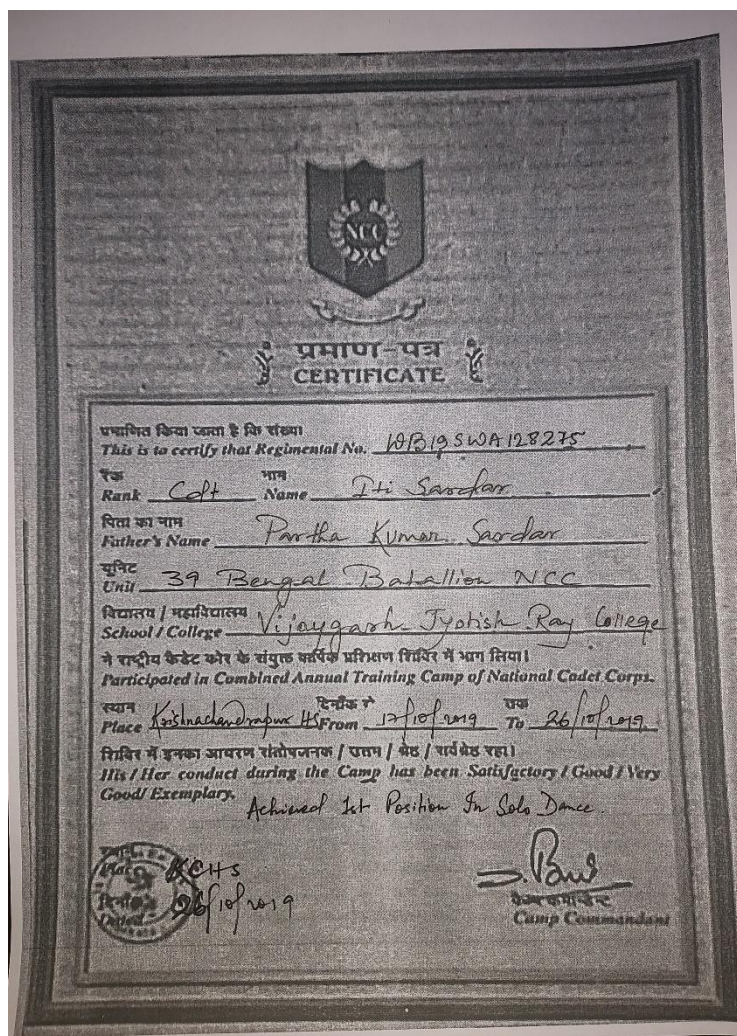 NCC
प्रमाण-पत्र
CERTIFICATE
प्रमाणित किया जाता है कि संख्या
This is to certify that Regimental No. WB19SWA128275
रैंक नाम
Rank Cdt Name Iti Sardar
पिता का नाम
Father's Name Partha Kumar Sardar
यूनिट
Unit 39 Bengal Batallion NCC
विद्यालय / महाविद्यालय
School / College Vijaygarh Jyotish Ray College
ने राष्ट्रीय कैडेट कोर के संयुक्त वार्षिक प्रशिक्षण शिविर में भाग लिया।
Participated in Combined Annual Training Camp of National Cadet Corps.
स्थान दिनाँक से तक
Place Krishnachandrapur HS From 17/10/2019 To 26/10/2019
शिविर में इनका आचरण संतोषजनक / उत्तम / श्रेष्ठ / सर्वश्रेष्ठ रहा।
His / Her conduct during the Camp has been Satisfactory / Good / Very
Good / Exemplary.
Achieved 1st Position In Solo Dance.
स्थान
Place KCHS
दिनाँक
Dated 26/10/2019
कैम्प कमान्डेन्ट
Camp Commandant